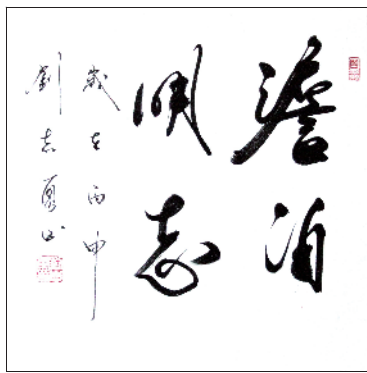 澹泊
明志
歲在丙申
劉志 书